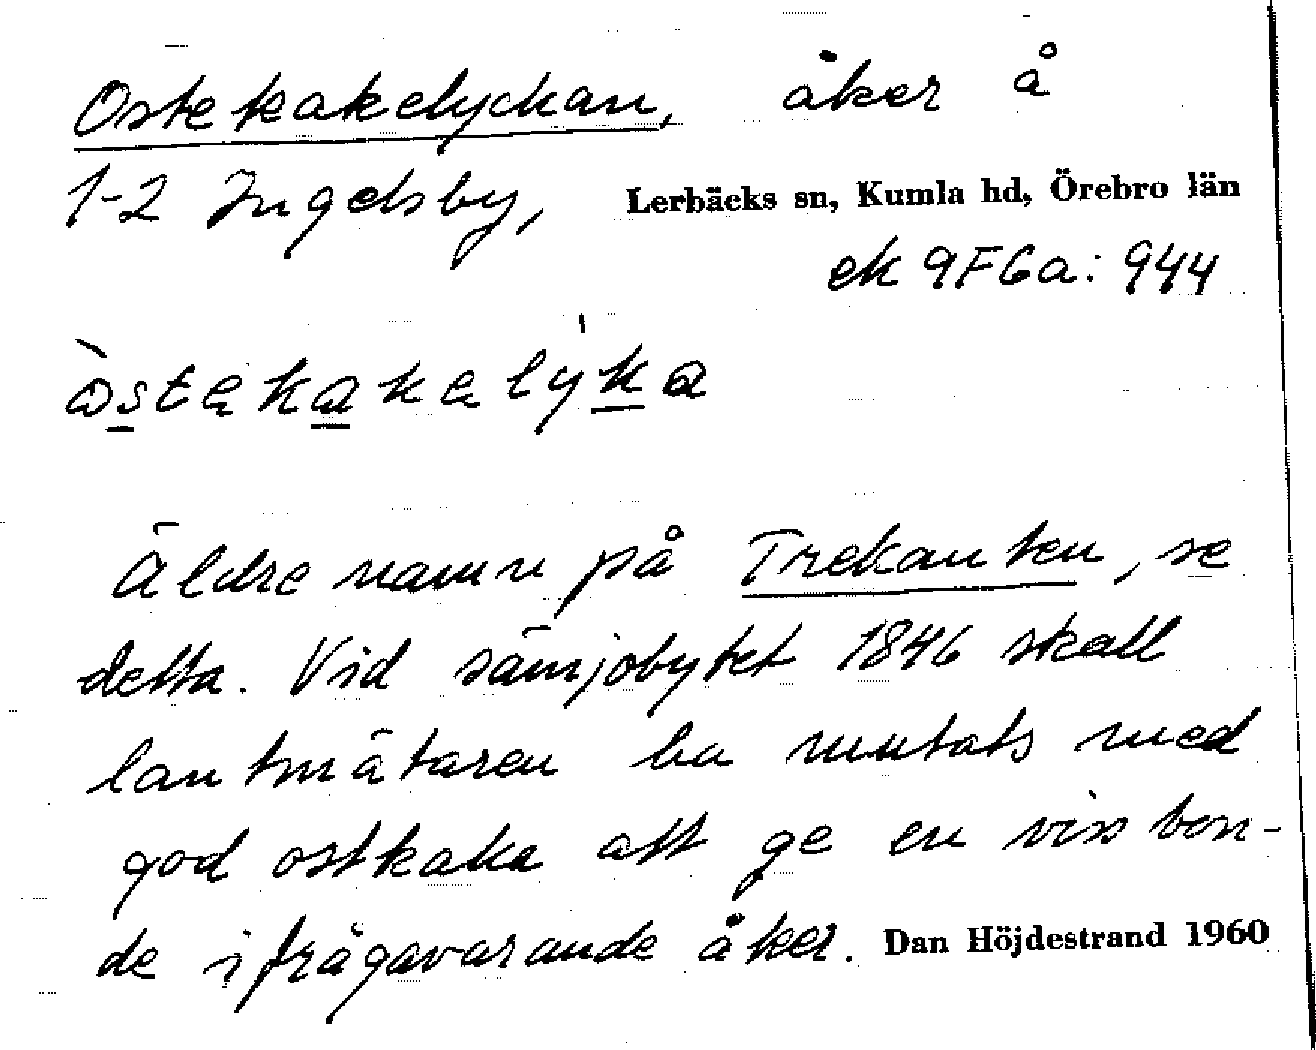 Ostekakelyckan, åker å
1-2 Ingelsby, Lerbäcks sn, Kumla hd, Örebro län
ek 9F6a: 944
òstəkakəlýka
Äldre namn på Trekanten, se
detta. Vid sämjobytet 1846 skall
lantmätaren ha mutats med
god ostkaka att ge en viss bon-
de ifrågavarande åker. Dan Höjdestrand 1960